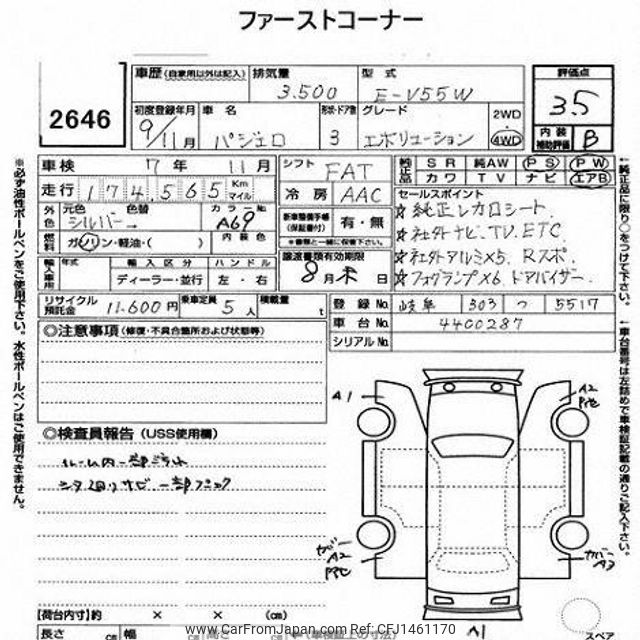 ファーストコーナー
2646
車歴 (自家用以外は記入)
排気量 3.500
型式 E-V55W
評価点 3.5
初度登録年月 9/11月
車名 パジェロ
形状・ドア数 3
グレード エボリューション
2WD
4WD
内装補助評価 B
車検 7年 11月
シフト FAT
純正品 SR 純AW PS PW
カワ TV ナビ エアB
走行 174,565 Km マイル
冷房 AAC
セールスポイント
☆純正レカロシート.
☆社外ナビ、TV、ETC
☆社外アルミ×5、Rスポ、
☆フォグランプ×6、ドアバイザー、
外色 元色 シルバー→ 色替
カラーNo. A69
内装色
燃料 ガソリン・軽油・( )
新車整備手帳(保証書付) 有・無
※書類と一緒に保管下さい。
輸入車用 年式 輸入区分 ハンドル
ディーラー・並行 左・右
譲渡書類有効期限
8月末日
リサイクル預託金 11.600円
乗車定員 5人
積載量 t
登録No. 岐阜 303 つ 5517
車台No. 4400287
シリアルNo.
◎注意事項 (修復・不具合箇所および状態等)
◎検査員報告 (USS使用欄)
ルーム内一部
シタ廻りサビ 一部
A1
A2
A2
A3
A1
【荷台内寸】約 × × (cm)
長さ cm 幅 cm 高さ cm
(車検証上の寸法)
スペア
※必ず油性ボールペンをご使用下さい。水性ボールペンはご使用できません。
←純正品に限り○をつけて下さい。
←車台番号は左詰めで車検証記載の通りご記入下さい。
www.CarFromJapan.com Ref: CFJ1461170